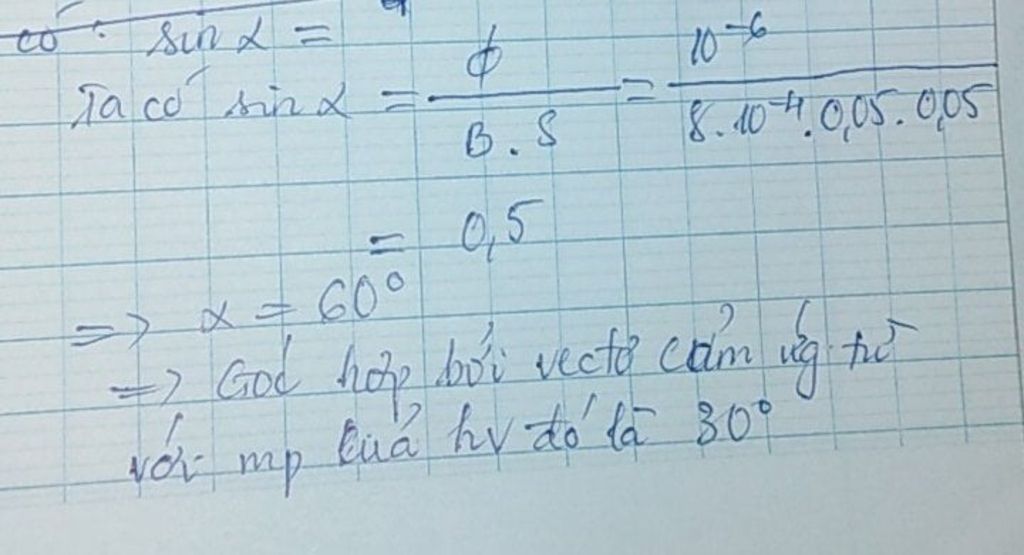 có : sin α =
Ta có sin α = ϕ / B . S = 10⁻⁶ / 8.10⁻⁴. 0,05. 0,05
= 0,5
=> α = 60°
=> Góc hợp bởi vectơ cảm ứg từ
với mp của hv đó là 30°